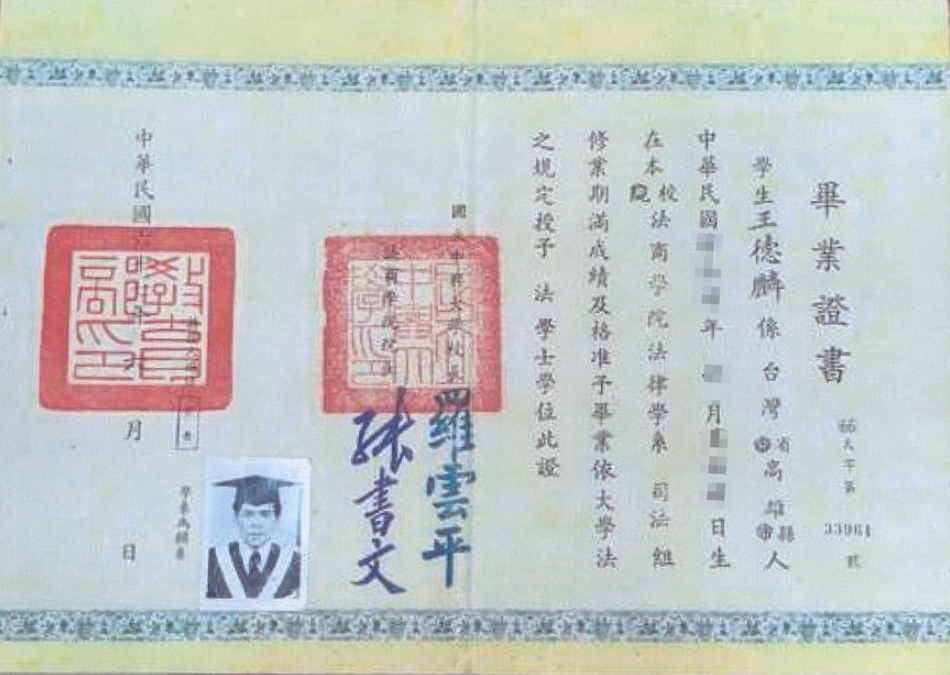 畢業證書
66大字第33961號
學生王德麟係台灣省市高雄縣市人
中華民國年月日生
在本校院法商學院法律學系司法組
修業期滿成績及格准予畢業依大學法
之規定授予法學士學位此證
國立中興大學校長羅雲平
法商學院院長張書文
中華民國六年月日